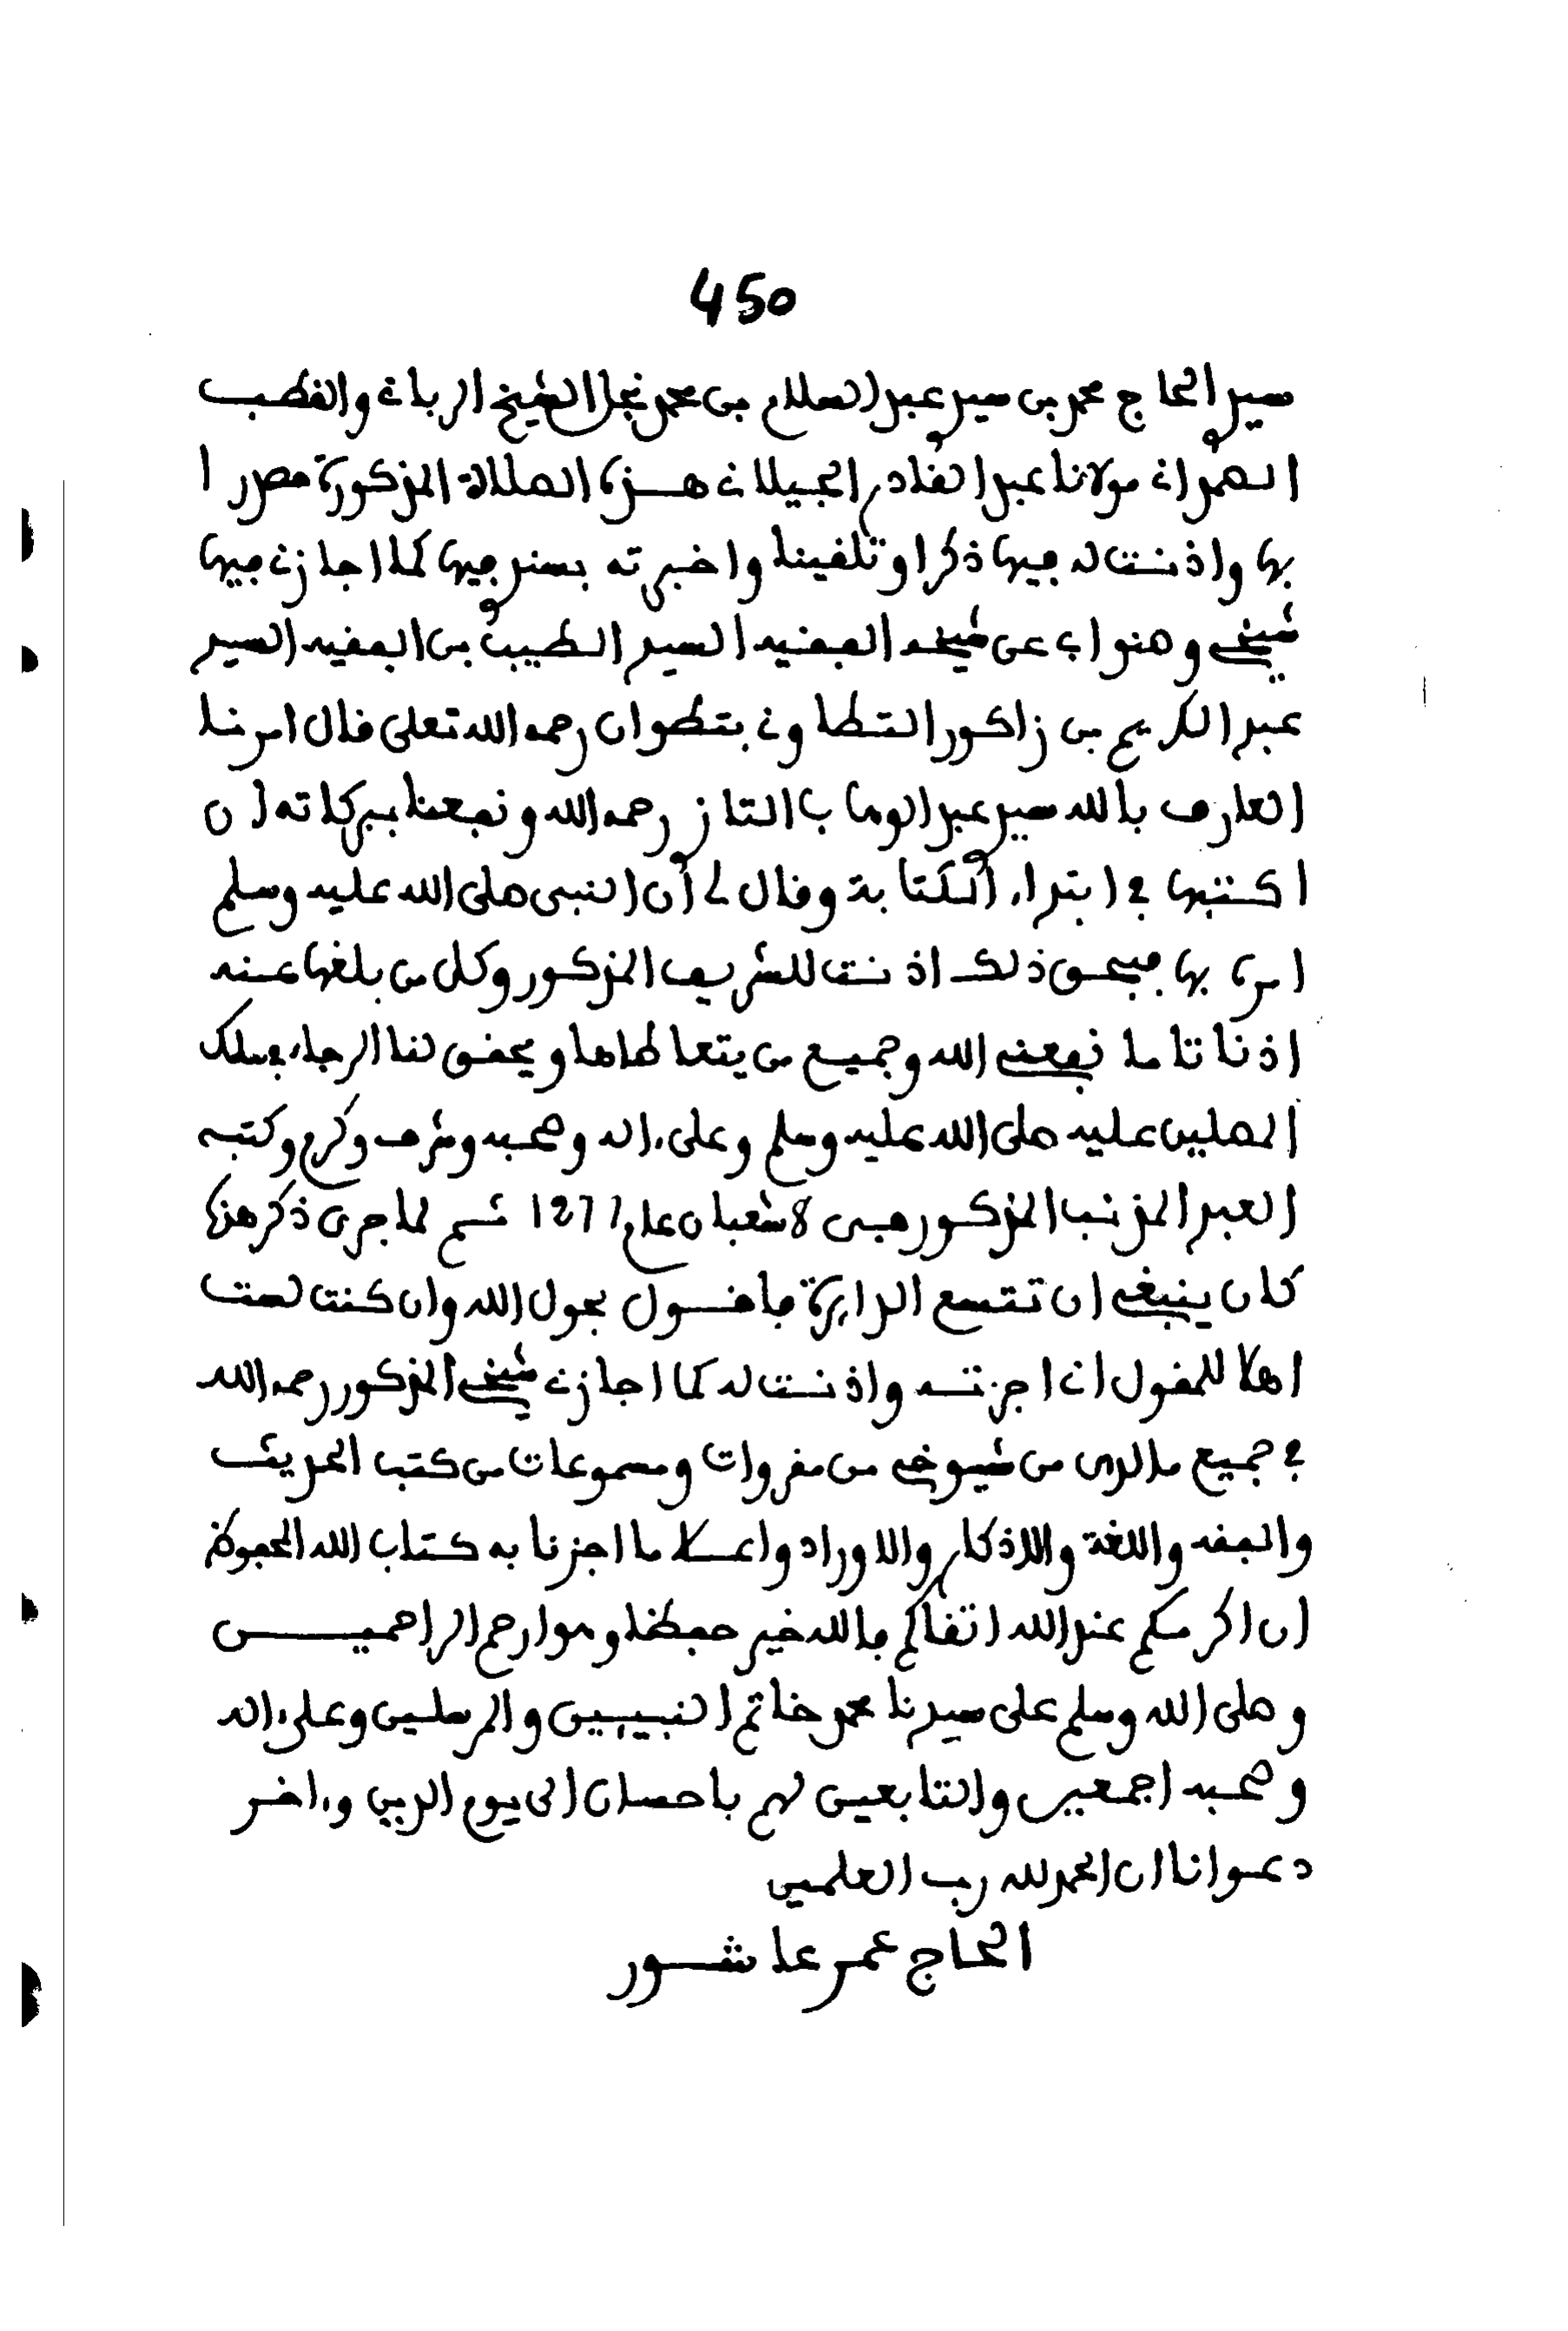 450
سيد الحاج محمد بن سيد عبد السلام بن محمد نجل الشيخ الرباني والقطب
الصمداني مولانا عبد القادر الجيلاني هذه الصلاة المذكورة مصدرا
بها واذنت له فيها ذكرا وتلقينا واخبرته بسند فيها كما اجازني فيها
شيخي وصنو ابي عن شيخه الفقيه السيد الطيب بن الفقيه السيد
عبد الكريم بن زاكور التطاوني بتطوان رحمه الله تعلى قال امرنا
العارف بالله سيد عبد الوهاب التاز رحمه الله ونفعنا ببركاته ان
اكتبها في ابتداء الكتابة وقال لي ان النبي صلى الله عليه وسلم
امره بها فبحق ذلك اذنت للشريف المذكور وكل من بلغها عنه
اذنا تاما نفعني الله وجميع من يتعاطاها ويحقق لنا الرجاء بسلك
المصلين عليه صلى الله عليه وسلم وعلى ءاله وصحبه وشرف وكرم وكتبه
العبد المذنب المذكور في شعبان عام 1277 ثم لما جرى ذكر هذا
كان ينبغي ان تتسع الدايرة فاقول بحول الله وان كنت لست
اهلا للمقول اني اجزته واذنت له كما اجازني شيخي المذكور رحمه الله
في جميع ما لدى من شيوخي من مقروات ومسموعات من كتب الحديث
والفقه واللغة والاذكار والاوراد واعلا ما اجزنا به كتاب الله المحفوظ
ان اكرمكم عند الله اتقاكم فالله خير حفظا وهو ارحم الراحميـن
وصلى الله وسلم على سيدنا محمد خاتم النبيين والمرسلين وعلى ءاله
وصحبه اجمعين والتابعين لهم باحسان الى يوم الدين وءاخر
دعوانا ان الحمد لله رب العلمين
الحاج عمر عاشور